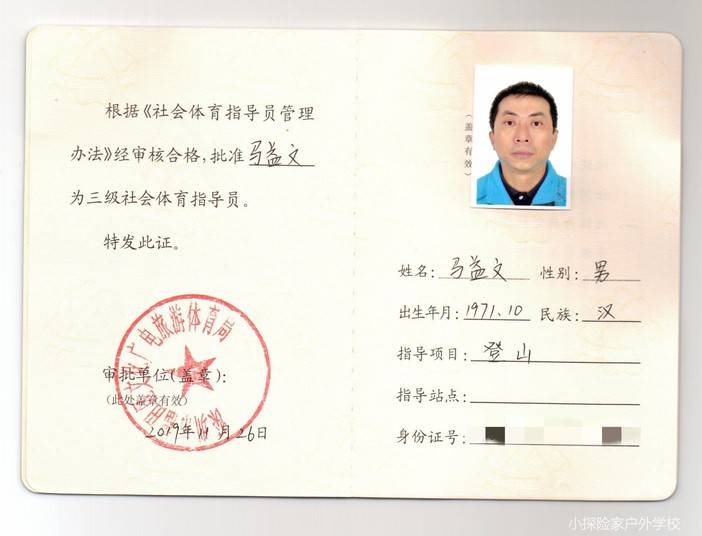 根据《社会体育指导员管理
办法》经审核合格，批准马益文
为三级社会体育指导员。
特发此证。
文化广电旅游体育局
审批单位（盖章）：
（此处盖章有效）
2019年11月26日
（盖章有效）
姓名：马益文 性别：男
出生年月：1971.10 民族：汉
指导项目：登山
指导站点：
身份证号：
小探险家户外学校